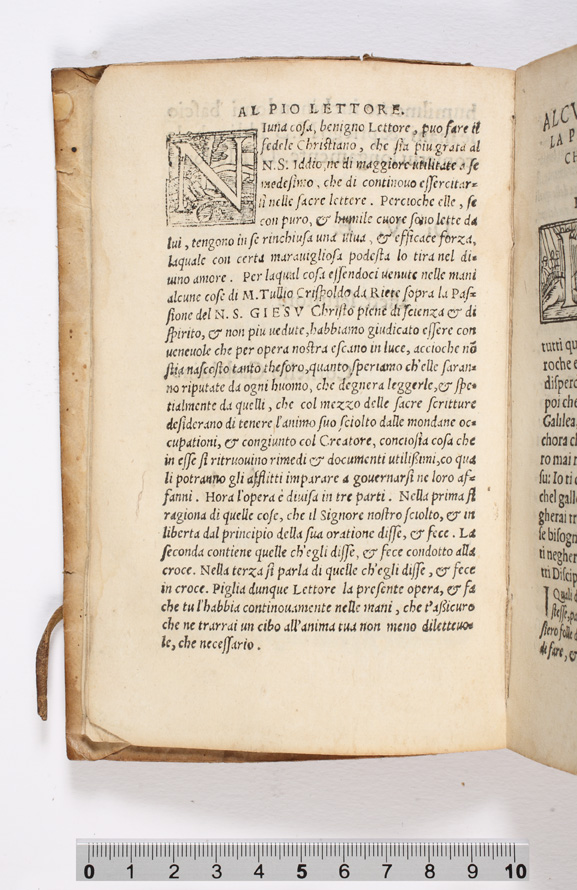 AL PIO LETTORE.
NIuna cosa, benigno Lettore, puo fare il
fedele Christiano, che sia piu grata al
N.S. Iddio, ne di maggiore utilitate a se
medesimo, che di continouo essercitar-
si nelle sacre lettere. Percioche elle, se
con puro, & humile cuore sono lette da
lui, tengono in se rinchiusa una uiua, & efficace forza,
laquale con certa marauigliosa podesta lo tira nel di-
uino amore. Per laqual cosa essendoci uenute nelle mani
alcune cose di M. Tullio Crispoldo da Riete sopra la Pas-
sione del N. S. GIESV Christo piene di scienza & di
spirito, & non piu uedute, habbiamo giudicato essere con
ueneuole che per opera nostra escano in luce, accioche nõ
stia nascosto tanto thesoro, quanto speriamo ch'elle saran-
no riputate da ogni huomo, che degnera leggerle, & spe-
tialmente da quelli, che col mezzo delle sacre scritture
desiderano di tenere l'animo suo sciolto dalle mondane oc-
cupationi, & congiunto col Creatore, conciosia cosa che
in esse si ritruouino rimedi & documenti utilißimi, co qua
li potranno gli afflitti imparare a governarsi ne loro af-
fanni. Hora l'opera è diuisa in tre parti. Nella prima si
ragiona di quelle cose, che il Signore nostro sciolto, & in
liberta dal principio della sua oratione disse, & fece. La
seconda contiene quelle ch'egli disse, & fece condotto alla
croce. Nella terza si parla di quelle ch'egli disse, & fece
in croce. Piglia dunque Lettore la presente opera, & fa
che tu l'habbia continouamente nelle mani, che t'aßicuro
che ne trarrai un cibo all'anima tua non meno diletteuo-
le, che necessario.
ALCV
LA P
CH
tutti qu
roche e
disperc
poi che
Galilea
chora ch
ro mai n
su: Io ti d
chel gall
gherai tr
se bisogn
ti negher
tri Discip
I Quali d
stesse, pa
siero folle d
di fare, &
0 1 2 3 4 5 6 7 8 9 10